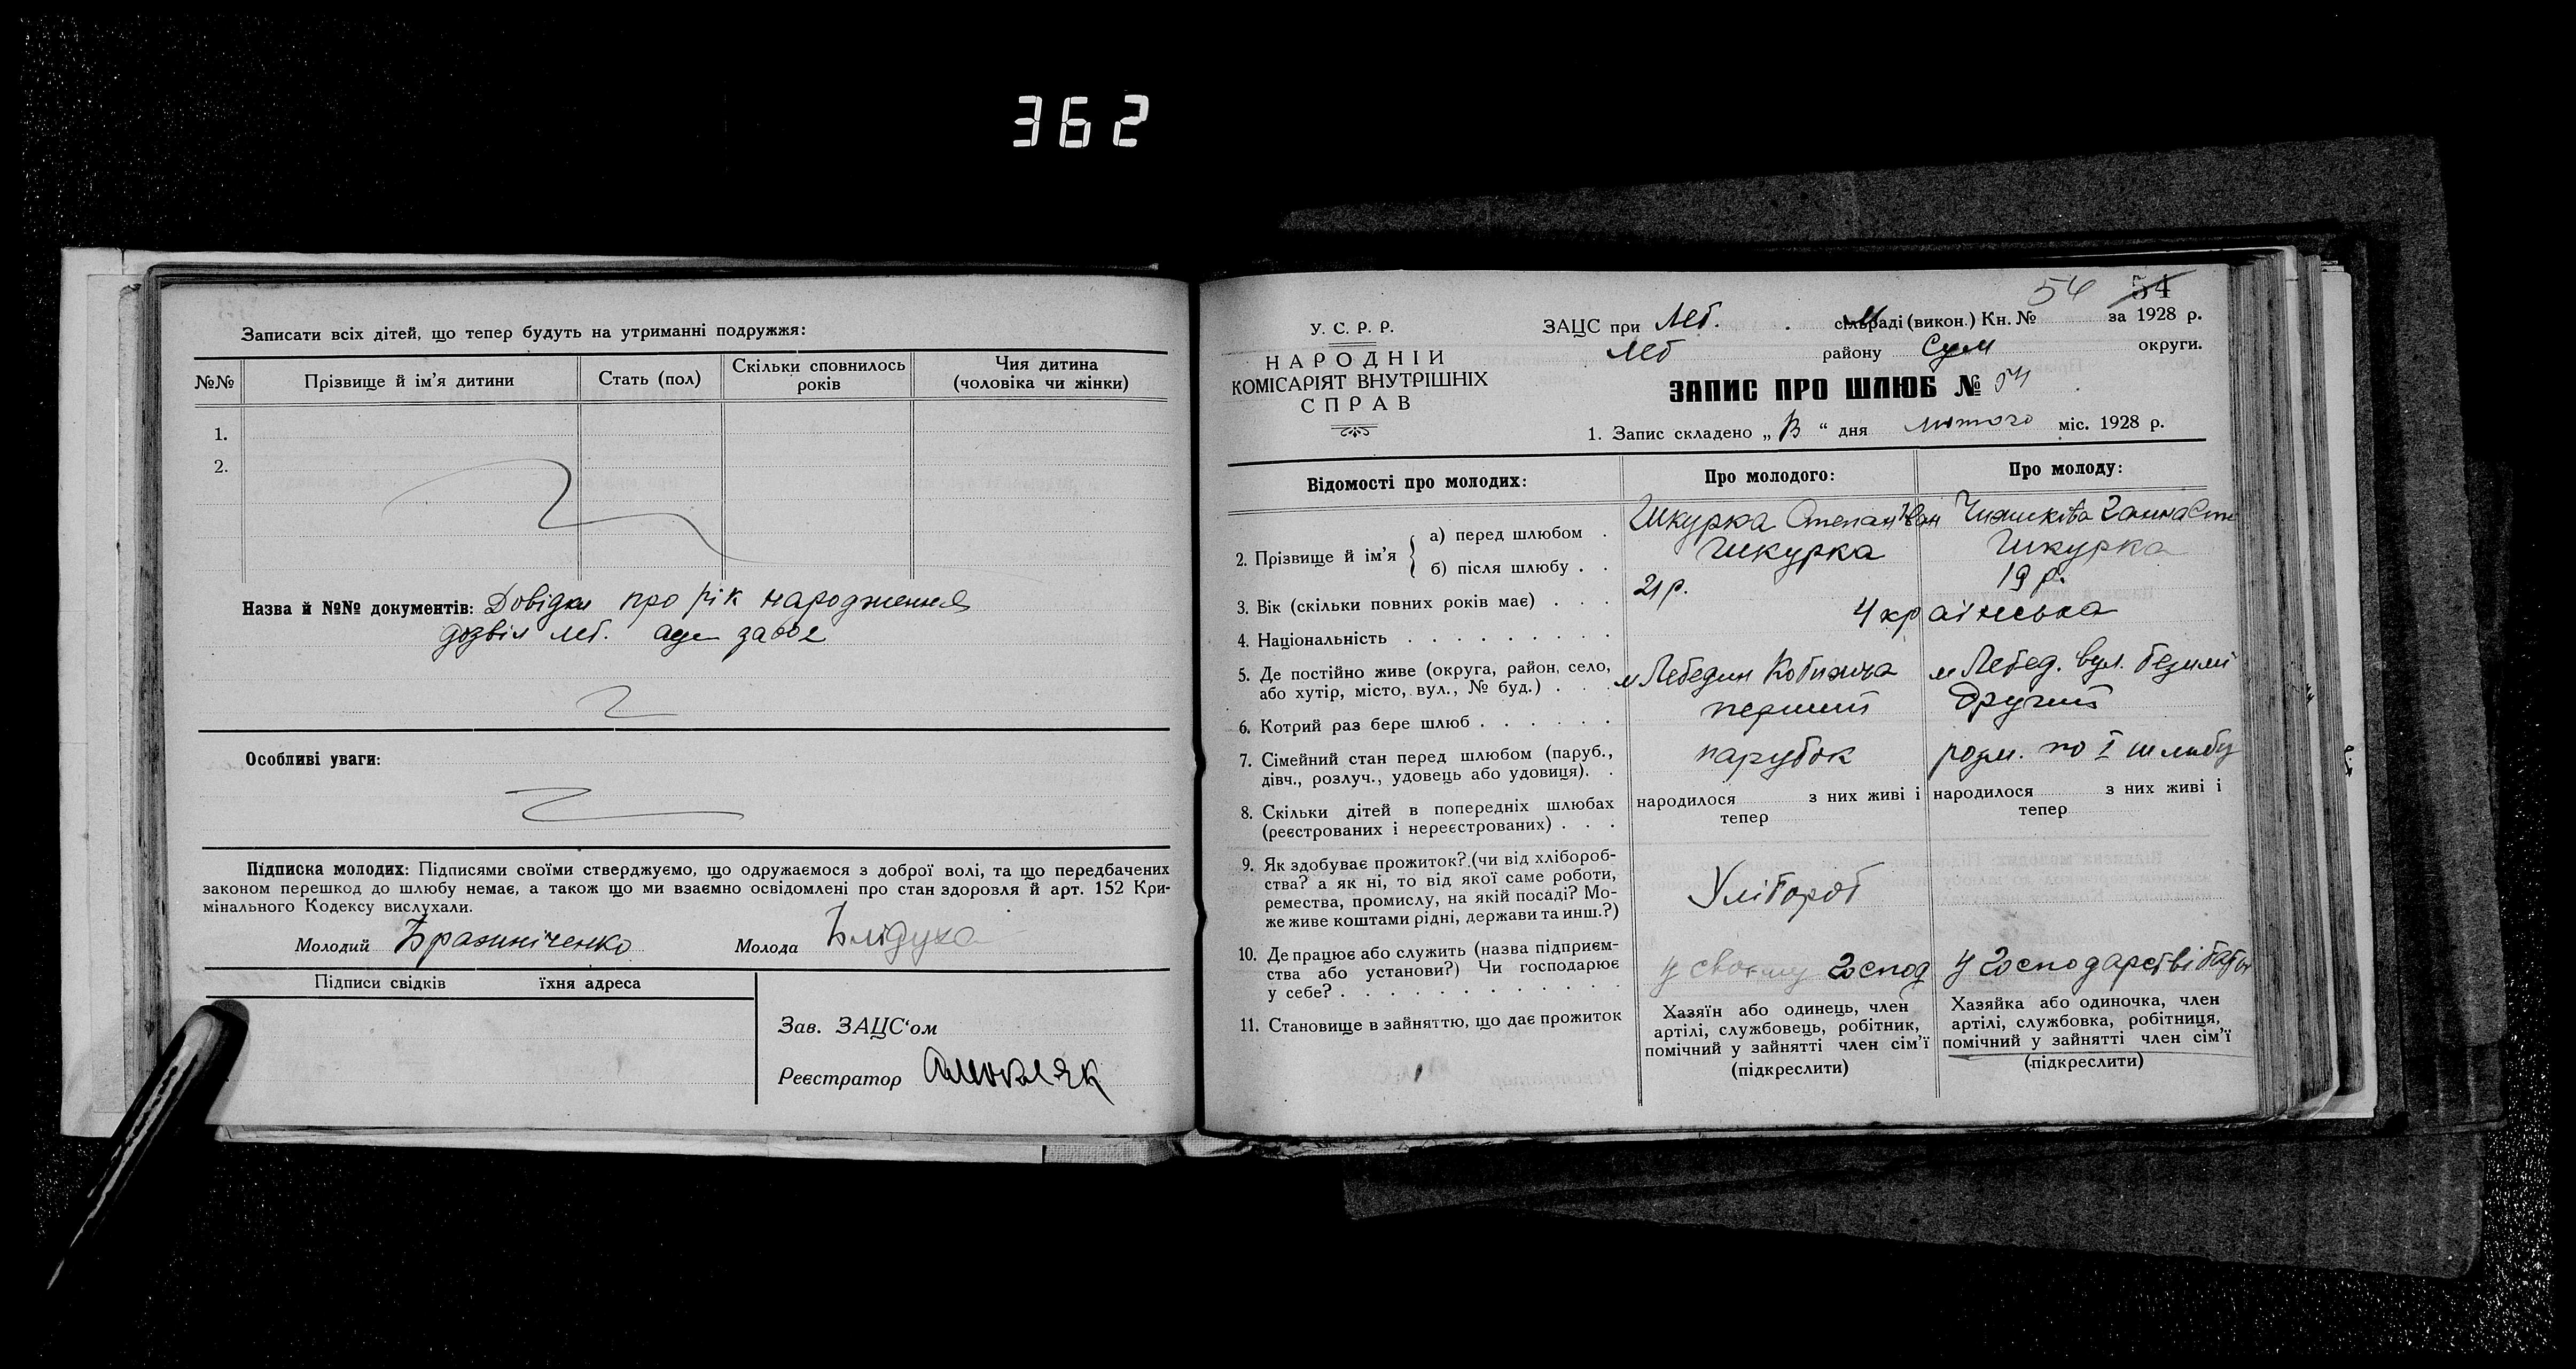 362
Записати всіх дітей, що тепер будуть на утриманні подружжя:
№№ Прізвище й ім'я дитини Стать (пол) Скільки сповнилось років Чия дитина (чоловіка чи жінки)
1.
2.
Назва й №№ документів: Довідка про рік народження
дозвіл Леб.
Особливі уваги:
Підписка молодих: Підписями своїми стверджуємо, що одружаємося з доброї волі, та що передбачених
законом перешкод до шлюбу немає, а також що ми взаємно освідомлені про стан здоровля й арт. 152 Кри-
мінального Кодексу вислухали.
Молодий Бражниченко Молода Блідуха
Підписи свідків їхня адреса
Зав. ЗАЦС'ом
Реєстратор
54 54
У. С. Р. Р.
НАРОДНІЙ
КОМІСАРІЯТ ВНУТРІШНІХ
СПРАВ
ЗАЦС при Леб. м сільраді (викон.) Кн. № за 1928 р.
Леб району Сум округи.
ЗАПИС ПРО ШЛЮБ № 54
1. Запис складено „ “ дня лютого міс. 1928 р.
Відомості про молодих: Про молодого: Про молоду:
2. Прізвище й ім'я { а) перед шлюбом . Шкурка Степан Іван Чижикова Ганна Сте
б) після шлюбу . . Шкурка Шкурка
3. Вік (скільки повних років має) . . . 21 р. 19 р.
4. Національність . . . . . . . . . Українська
5. Де постійно живе (округа, район, село,
або хутір, місто, вул., № буд.) . . . м Лебедин Кобижча м Лебед. вул.
6. Котрий раз бере шлюб . . . . . . перший Другий
7. Сімейний стан перед шлюбом (паруб.,
дівч., розлуч., удовець або удовиця). . парубок розл. по I шлюбу
8. Скільки дітей в попередніх шлюбах
(реєстрованих і нереєстрованих) . . .
народилося з них живі і
тепер
народилося з них живі і
тепер
9. Як здобуває прожиток? (чи від хлібороб-
ства? а як ні, то від якої саме роботи,
ремества, промислу, на якій посаді? Мо-
же живе коштами рідні, держави та инш.?)
Хлібороб
10. Де працює або служить (назва підприєм-
ства або установи?) Чи господарює
у себе? . . . . . . . . . . . .
у своєму господ у господарстві батьк
11. Становище в зайняттю, що дає прожиток
Хазяїн або одинець, член
артілі, службовець, робітник,
помічний у зайнятті член сім'ї
(підкреслити)
Хазяйка або одиночка, член
артілі, службовка, робітниця,
помічний у зайнятті член сім'ї
(підкреслити)